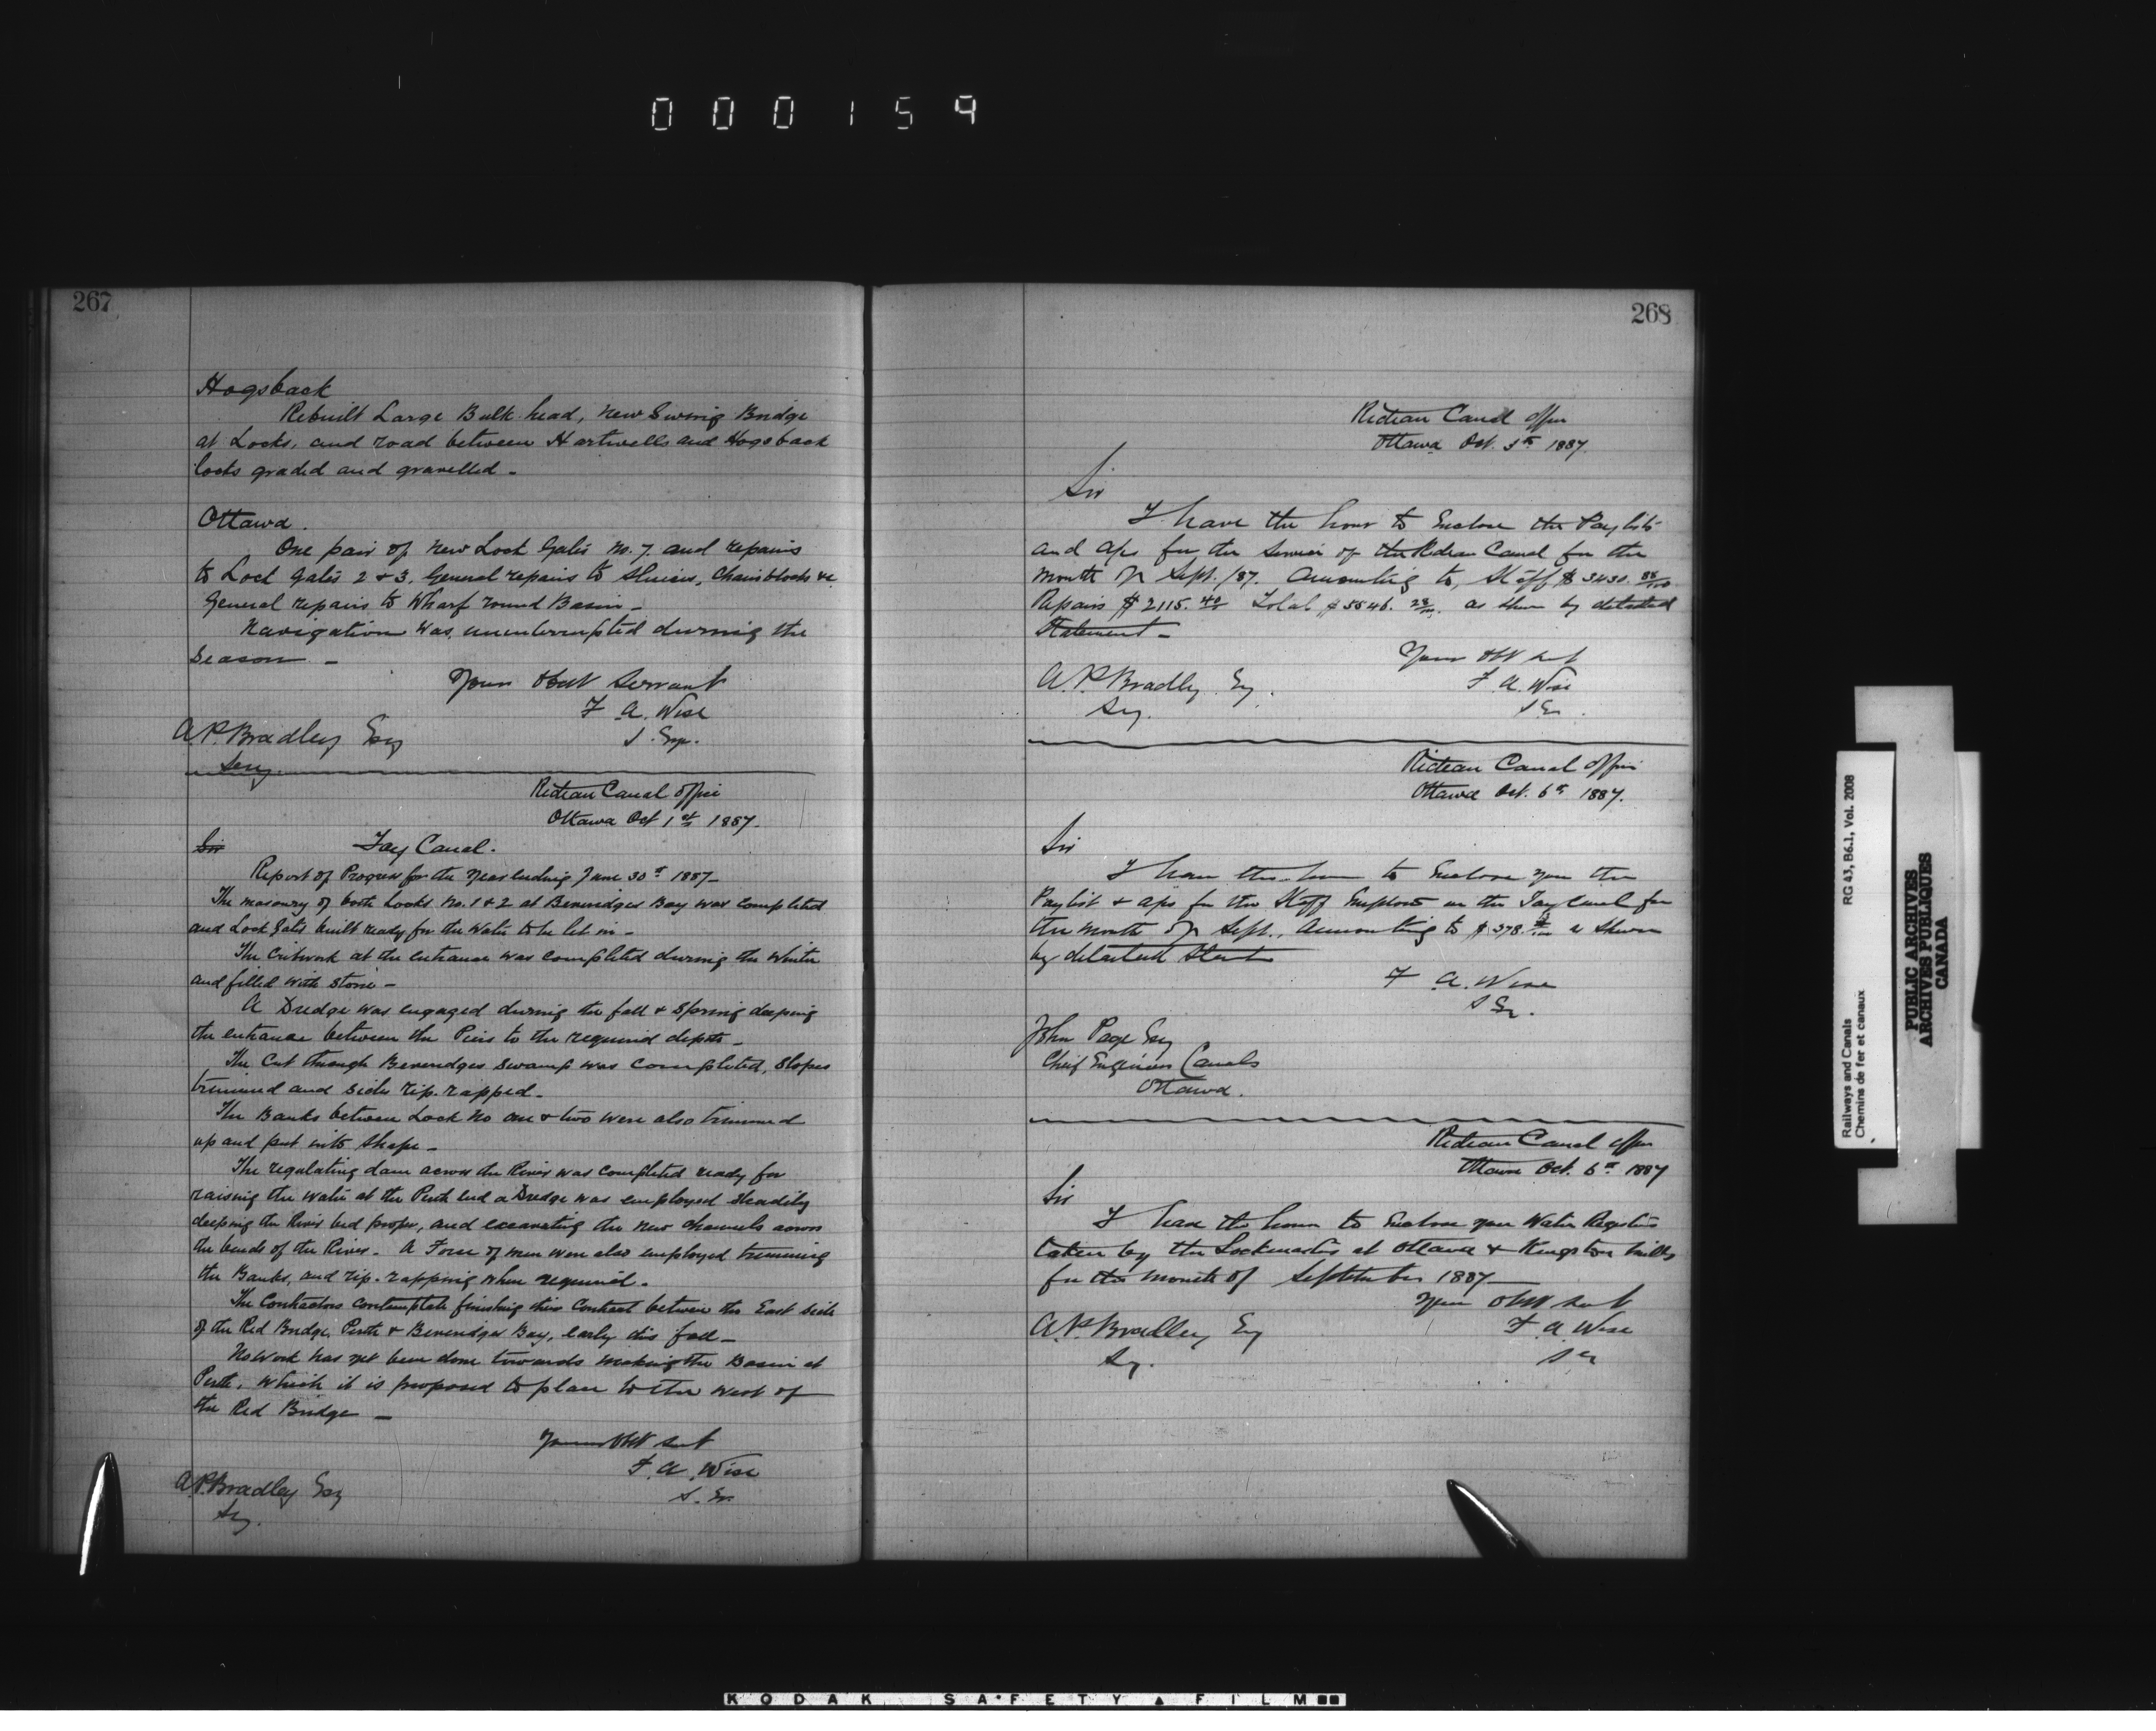 000159
267
Hogsback
Rebuilt Large Bulk head, new Swing Bridge
at Locks, and road between Hartwells and Hogsback
locks graded and gravelled -
Ottawa.
One pair of new Lock Gates No. 7. and repairs
to Lock Gates 2 & 3. General repairs to Sluices, Chain blocks &c
General repairs to Wharf round Basin -
Navigation was uninterrupted during the
Season -
Your Obdt Servant
F. A. Wise
S. Eng.
A. P. Bradley Esq
Secy.
Rideau Canal Office
Ottawa Oct 1st 1887.
Sir
Tay Canal.
Report of Progress for the Year Ending June 30th 1887-
The masonry of both Locks No. 1 & 2 at Beveridges Bay was completed
and Lock Gates built ready for the Water to be let in -
The Cribwork at the entrance was completed during the Winter
and filled with stone -
A Dredge was engaged during the fall & Spring deeping
the entrance between the Piers to the required depth -
The Cut through Beveridges Swamp was completed, Slopes
trimmed and sides rip-rapped -
The Banks between Lock No one & two were also trimmed
up and put into shape -
The regulating dam across the River was completed ready for
raising the water at the Perth End a Dredge was employed steadily
deeping the River bed proper, and excavating the new channels across
the bends of the River - A Force of men were also employed trimming
the Banks, and rip-rapping where required -
The Contractors contemplate finishing this Contract between the East side
of the Red Bridge Perth & Beveridges Bay, early this fall -
No work has yet been done towards making the Basin at
Perth, which it is proposed to place to the West of
the Red Bridge -
Your Obt Sert
F. A. Wise
S. En.
A. P. Bradley Esq
Sy.
268
Rideau Canal Office
Ottawa Oct. 5th 1887.
Sir
I have the honor to Enclose the Paylists
and a/cs for the Service of the Rideau Canal for the
month of Sept. /87. Amounting to, Staff $3430. 88/100
Repairs $2115. 40 Total $5546. 28/100 as shown by detailed
Statement -
Your Obt Sert
F. A. Wise
S En.
A. P. Bradley Esq.
Sy.
Rideau Canal Office
Ottawa Oct. 6th 1887.
Sir
I have the honor to Enclose you the
Paylist & a/cs for the Staff Employed on the Tay Canal for
the month of Sept., Amounting to $378. as shown
by detailed Statt
F. A. Wise
S En.
John Page Esq
Chief Engineer Canals
Ottawa.
Rideau Canal Office
Ottawa Oct. 6th 1887
Sir
I have the honor to Enclose your Water Registers
taken by the Lockmasters at Ottawa & Kingston Mills
for the month of September 1887 -
Your Obt Sert
F. A. Wise
S En
A. P. Bradley Esq
Sy.
Railways and Canals RG 43, B6.1, Vol. 2008
Chemins de fer et canaux
PUBLIC ARCHIVES
ARCHIVES PUBLIQUES
CANADA
KODAK SAFETY FILM